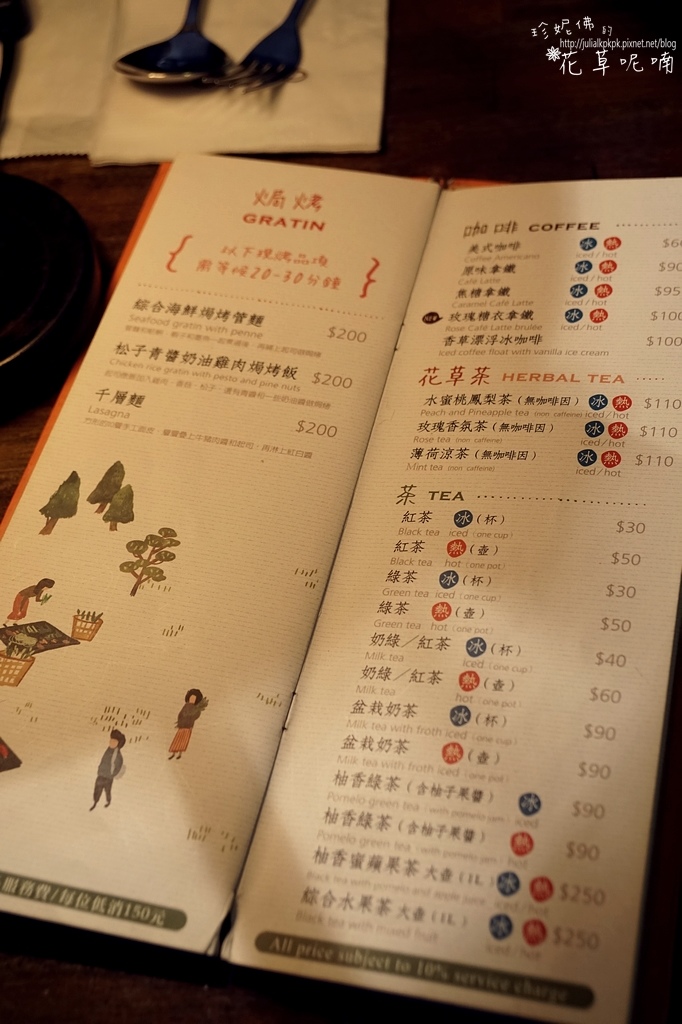 珍妮佛的
http://julialkpkpk.pixnet.net/blog
花草呢喃
焗烤
GRATIN
以下現烤品項
需等候20-30分鐘
綜合海鮮焗烤管麵 $200
Seafood gratin with penne
松子青醬奶油雞肉焗烤飯 $200
Chicken rice gratin with pesto and pine nuts
千層麵 $200
Lasagna
服務費/每位低消150元
咖啡 COFFEE
美式咖啡 冰 熱
Coffee Americano iced/hot
原味拿鐵 冰 熱 $90
Café Latte iced/hot
焦糖拿鐵 冰 熱 $95
Caramel Café Latte iced/hot
玫瑰糖衣拿鐵 冰 熱 $100
Rose Café Latte brulee iced/hot
香草漂浮冰咖啡 $100
Iced coffee float with vanilla ice cream
花草茶 HERBAL TEA
水蜜桃鳳梨茶(無咖啡因) 冰 熱 $110
Peach and Pineapple tea (non caffeine) iced/hot
玫瑰香氛茶(無咖啡因) 冰 熱 $110
Rose tea (non caffeine) iced/hot
薄荷涼茶(無咖啡因) 冰 熱 $110
Mint tea (non caffeine) iced/hot
茶 TEA
紅茶 冰(杯) $30
Black tea iced (one cup)
紅茶 熱(壺) $50
Black tea hot (one pot)
綠茶 冰(杯) $30
Green tea iced (one cup)
綠茶 熱(壺) $50
Green tea hot (one pot)
奶綠/紅茶 冰(杯) $40
Milk tea iced (one cup)
奶綠/紅茶 熱(壺) $60
Milk tea hot (one pot)
盆栽奶茶 冰(杯) $90
Milk tea with froth iced (one cup)
盆栽奶茶 熱(壺) $90
Milk tea with froth iced (one pot)
柚香綠茶(含柚子果醬) 冰 $90
Pomelo green tea (with pomelo jam) iced
柚香綠茶(含柚子果醬) 熱 $90
Pomelo green tea (with pomelo jam) hot
柚香蜜蘋果茶 大壺(1L) 冰 熱 $250
Black tea with pomelo and apple juice iced/hot
綜合水果茶 大壺(1L) 冰 熱 $250
Black tea with mixed fruit iced/hot
All price subject to 10% service charge